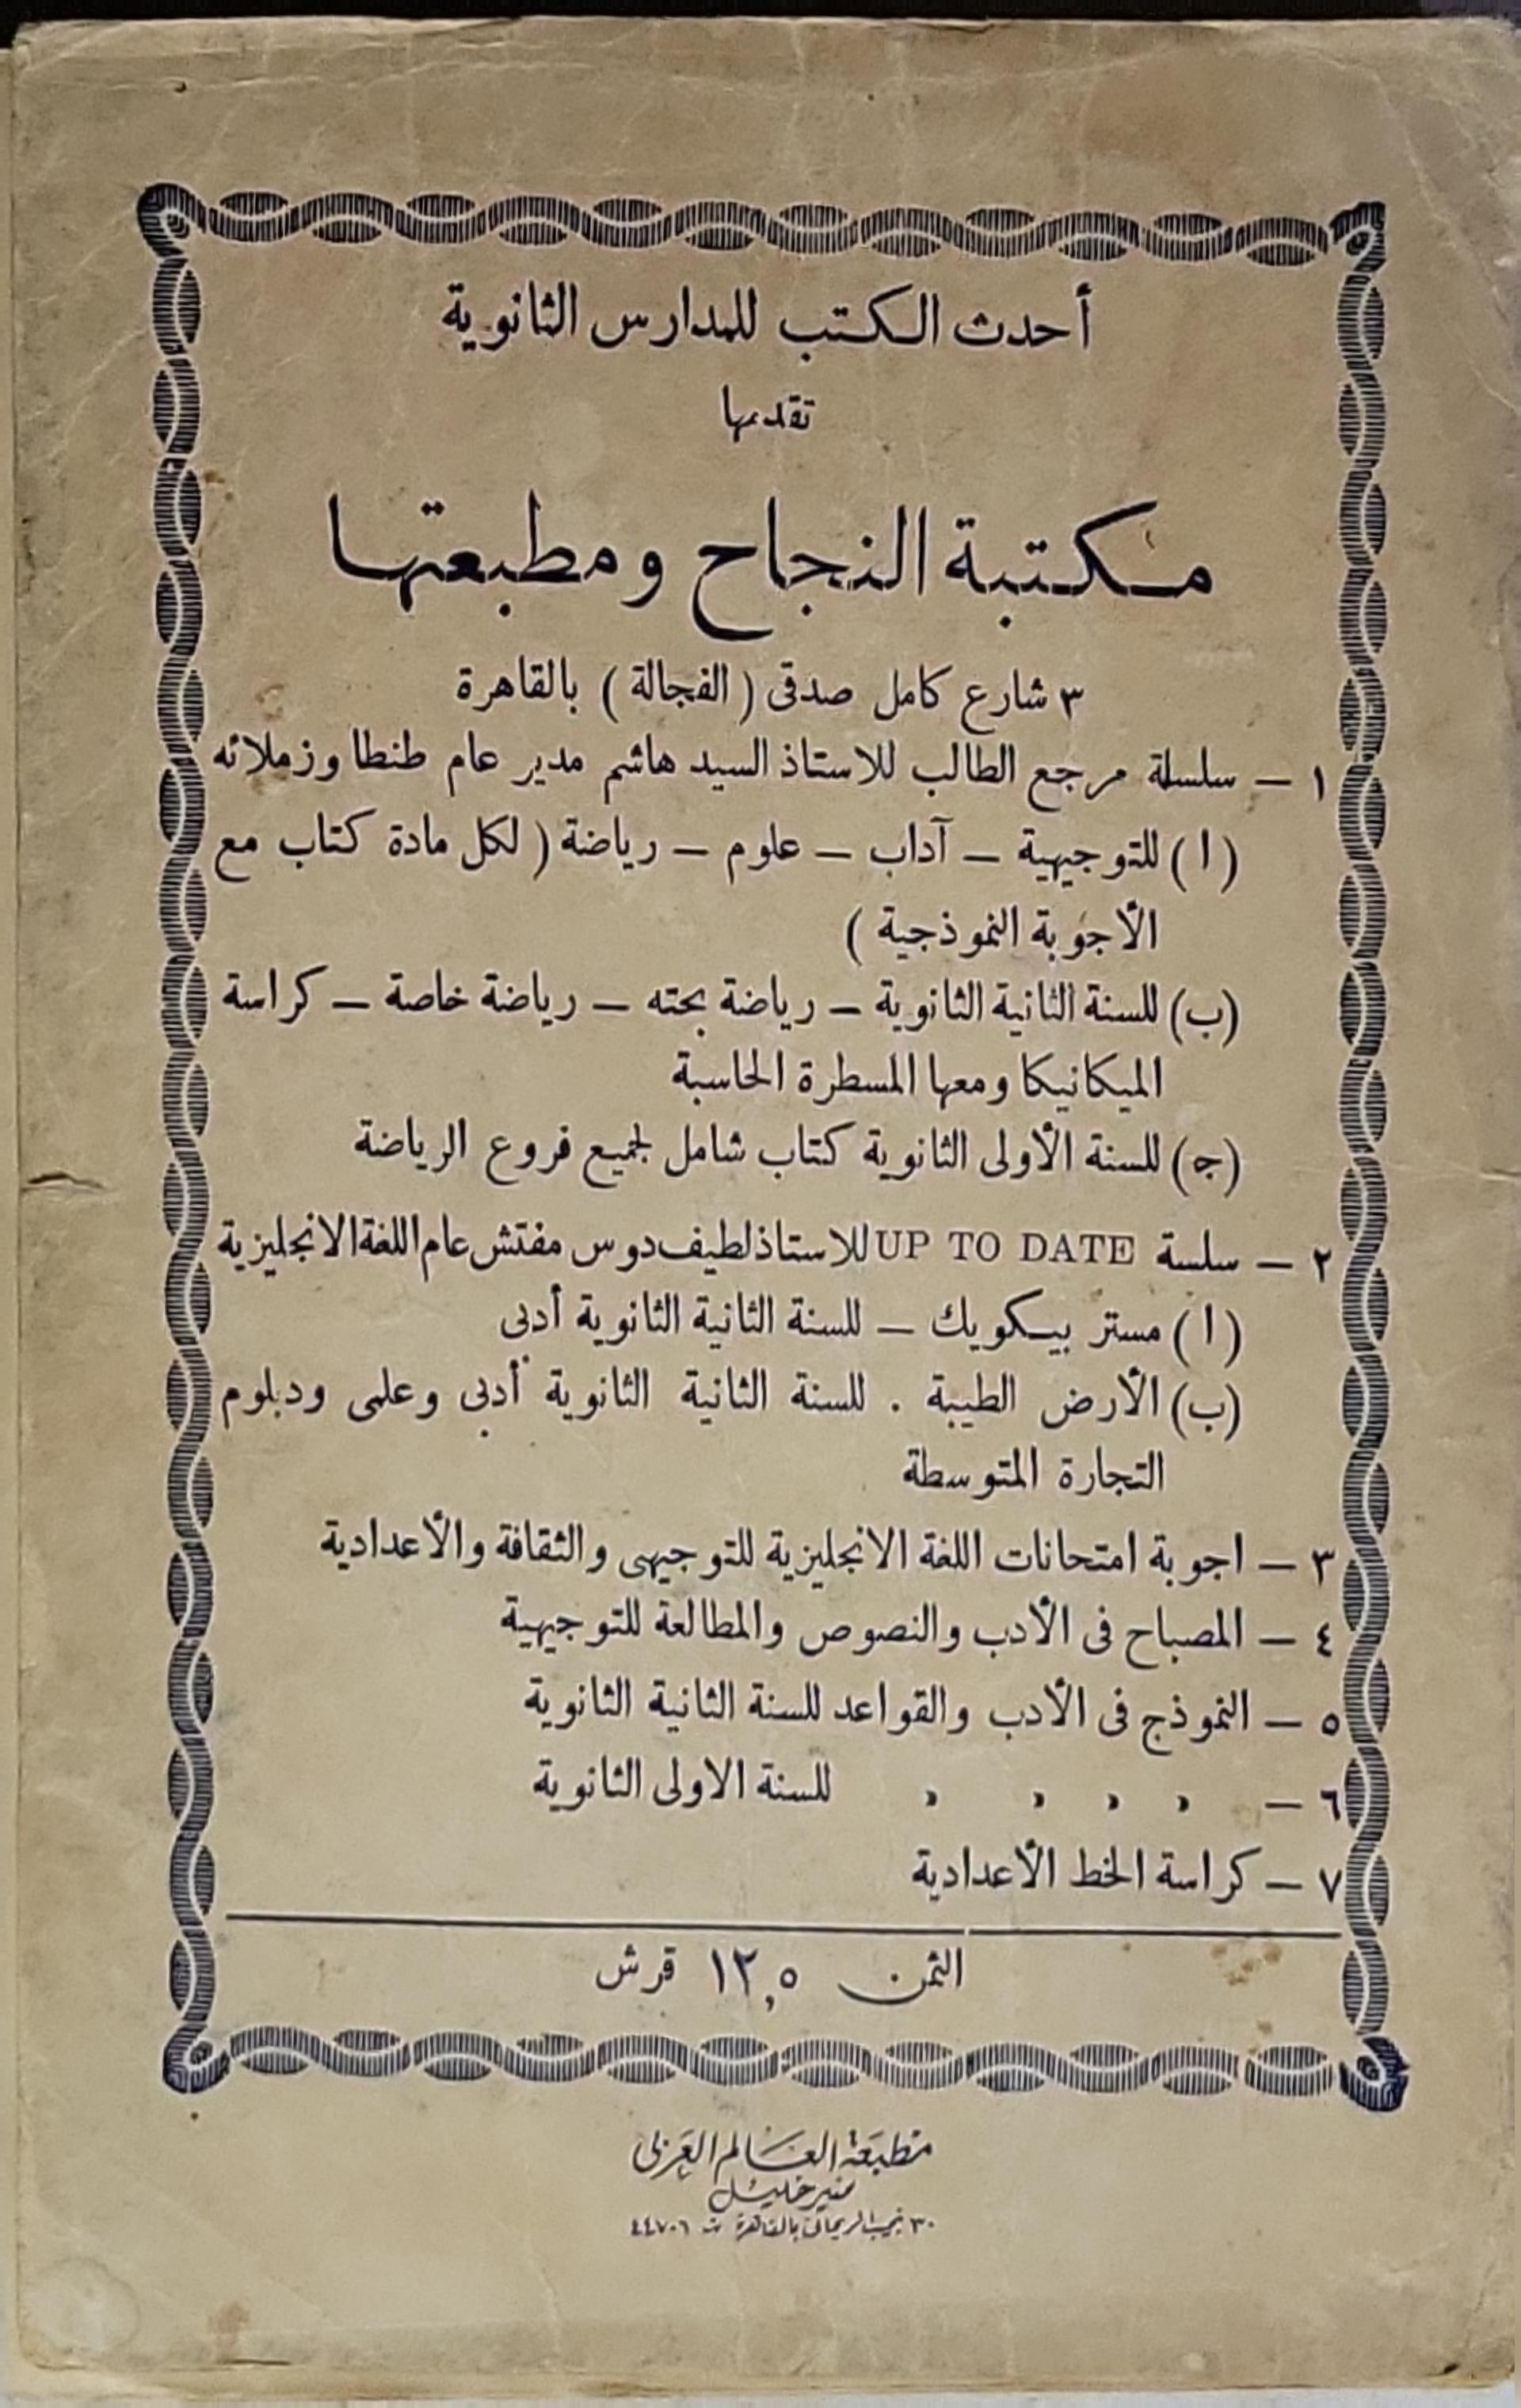 أحدث الكتب للمدارس الثانوية
تقدمها
مكتبة النجاح ومطبعتها
٣ شارع كامل صدقى ( الفجالة ) بالقاهرة
١ — سلسلة مرجع الطالب للاستاذ السيد هاشم مدير عام طنطا وزملائه
( ا ) للتوجيهية — آداب — علوم — رياضة ( لكل مادة كتاب مع
الأجوبة النموذجية )
(ب) للسنة الثانية الثانوية — رياضة بحته — رياضة خاصة — كراسة
الميكانيكا ومعها المسطرة الحاسبة
(ج) للسنة الأولى الثانوية كتاب شامل لجميع فروع الرياضة
٢ — سلسة UP TO DATE للاستاذ لطيف دوس مفتش عام اللغة الانجليزية
( ا ) مستر بيكويك — للسنة الثانية الثانوية أدبى
(ب) الأرض الطيبة . للسنة الثانية الثانوية أدبى وعلمى ودبلوم
التجارة المتوسطة
٣ — اجوبة امتحانات اللغة الانجليزية للتوجيهى والثقافة والأعدادية
٤ — المصباح فى الأدب والنصوص والمطالعة للتوجيهية
٥ — النموذج فى الأدب والقواعد للسنة الثانية الثانوية
٦ — د د د د للسنة الاولى الثانوية
٧ — كراسة الخط الأعدادية
الثمن ١٢,٥ قرش
مطبعة العالم العربى
منير خليل
٣٠ نجيب الريحانى بالقاهرة ت ٤٤٧٠٦